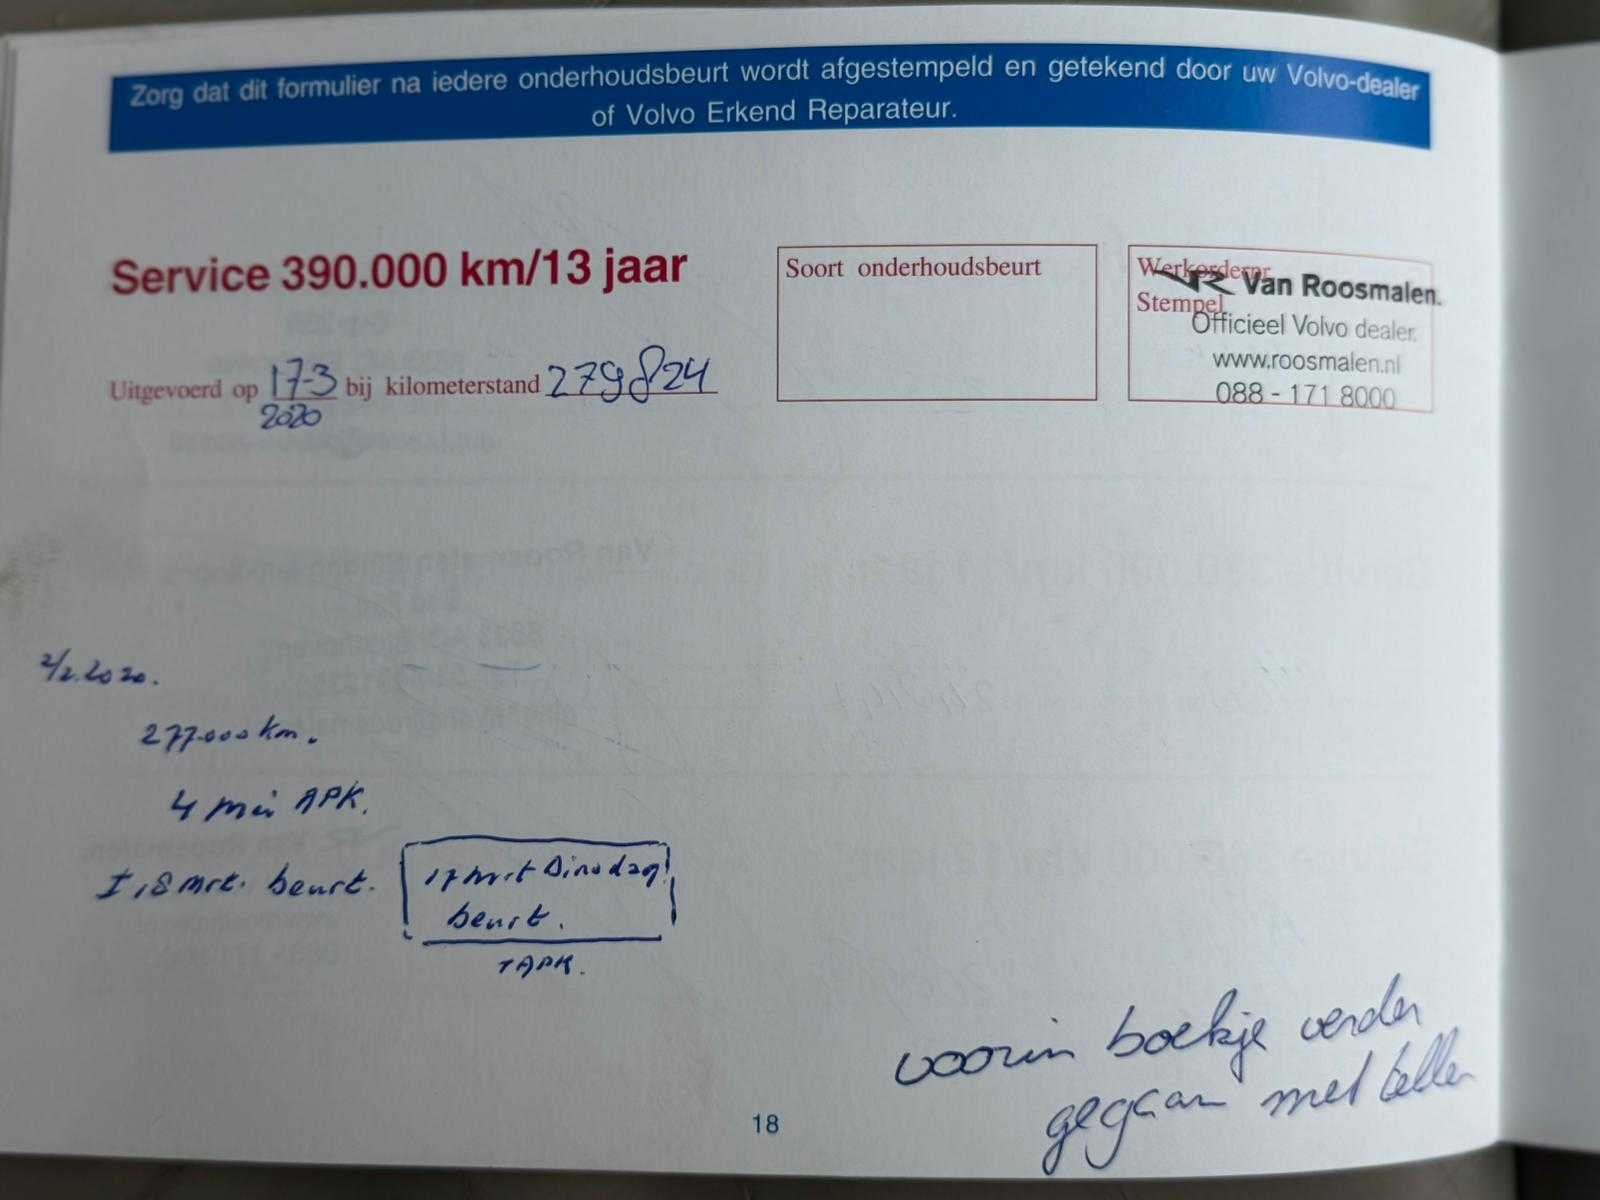 Zorg dat dit formulier na iedere onderhoudsbeurt wordt afgestempeld en getekend door uw Volvo-dealer
of Volvo Erkend Reparateur.
Service 390.000 km/13 jaar
Uitgevoerd op 17-3 bij kilometerstand 279824
2020
Soort onderhoudsbeurt
Werkordernr
Stempel
Van Roosmalen.
Officieel Volvo dealer.
www.roosmalen.nl
088 - 171 8000
2/2.2020.
277.000 km.
4 mei APK.
beurt.
17 mrt Dinsdag!
beurt.
APK.
voorin boekje verder
gegaan met tellen
18